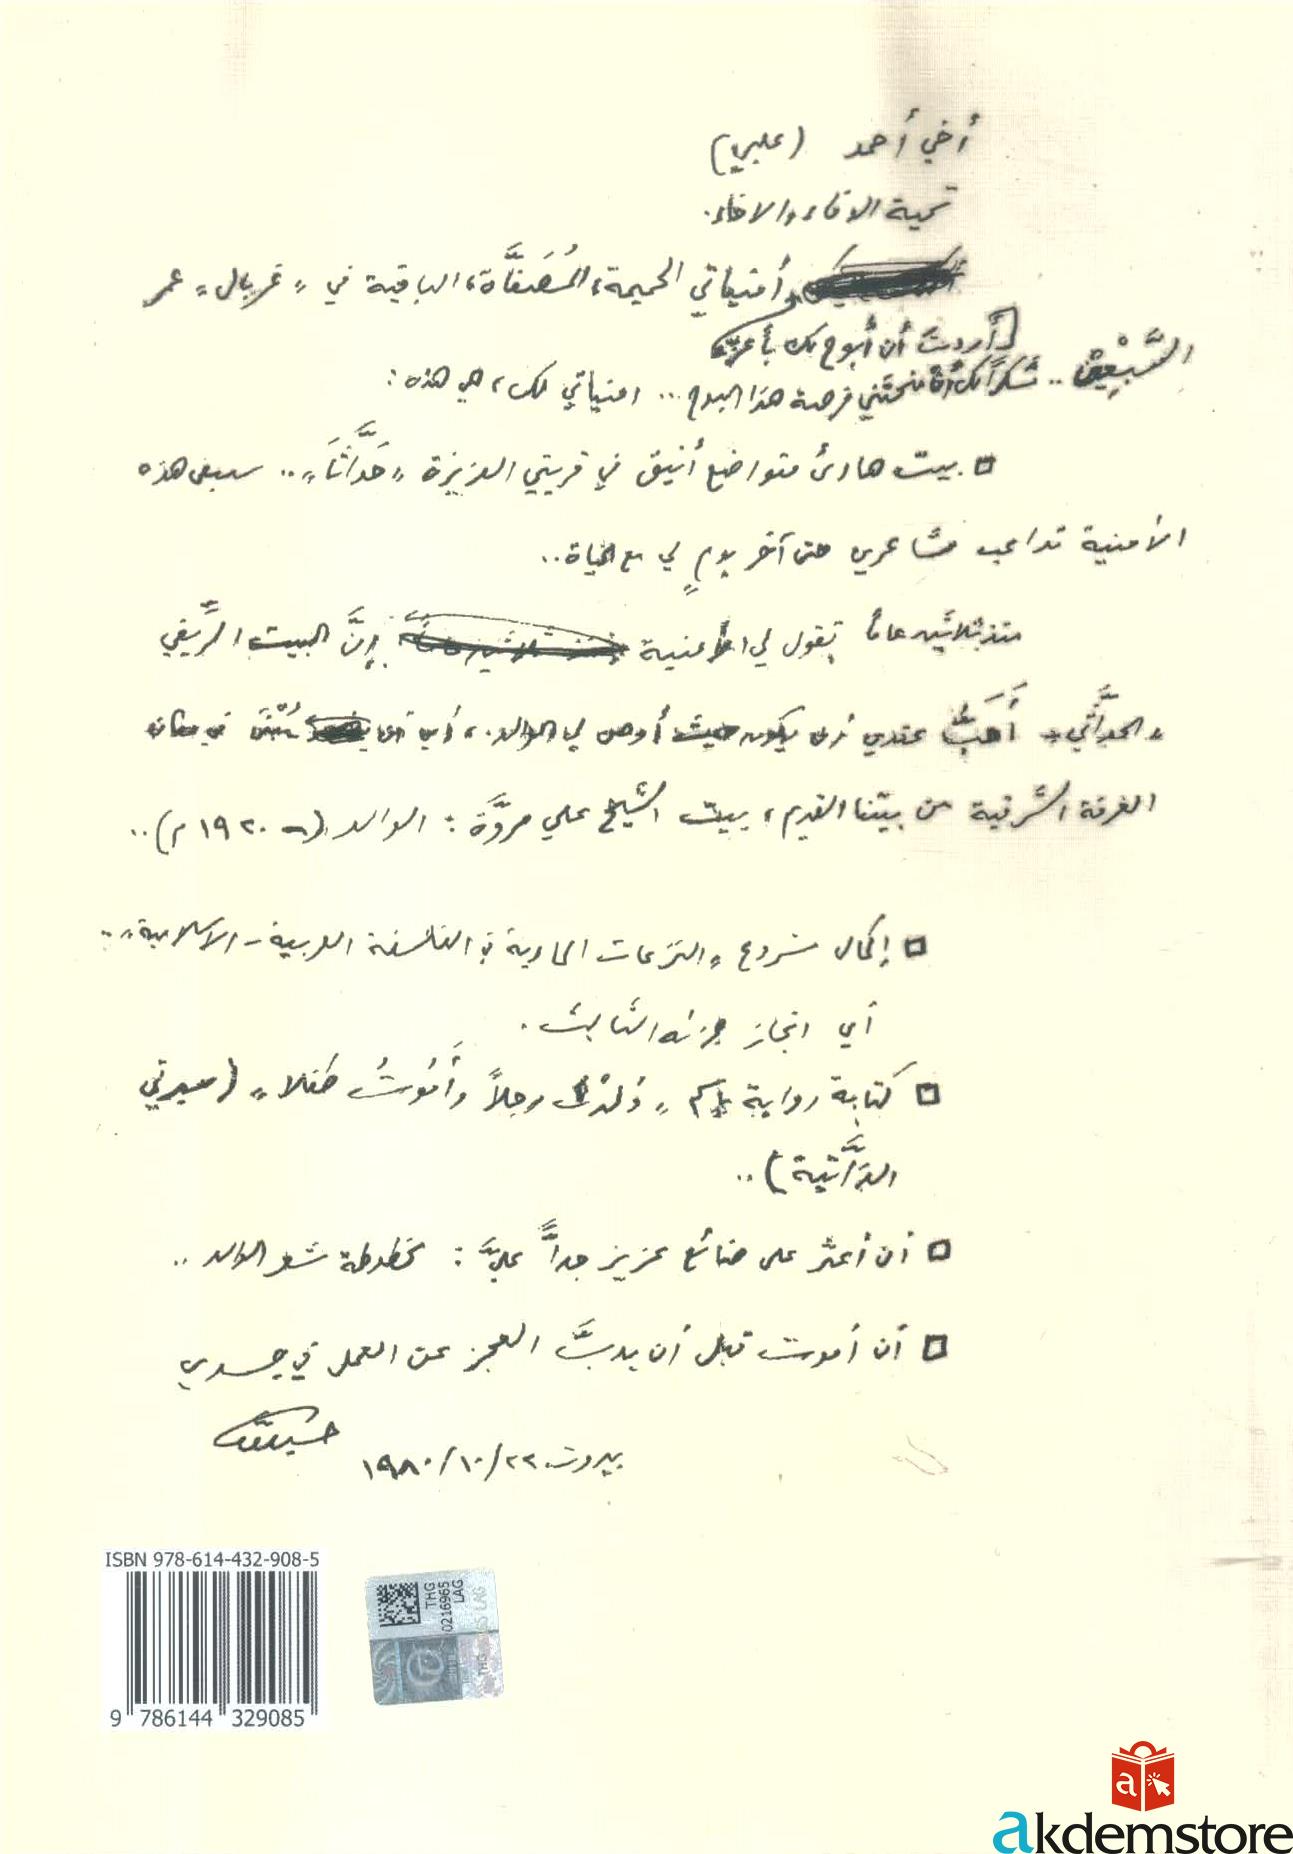 أخي أحمد (علبي)
تحية الوفاء والاخاء.
وأمنياتي الحميمة، المُصَفَّاة، الباقية في «غربال» عمر
أردتُ أن أبوح لك بأعزّها
السَّبْعِيْن.. شكراً لك أن منحتني فرصة هذا البوح... امنياتي لك، هي هذه:
بيت هادئ متواضع أنيق في قريتي العزيزة «حَدَّاثَا».. ستبقى هذه
الأمنية تداعب مشاعري حتى آخر يومٍ لي مع الحياة..
منذ ثلاثين عاماً تقول لي الأمنية إنَّ البيت الرِّيفي
«الحدَّاثي» أَحَبُّ عندي أن يكون حيث أوصى لي الوالد، أي أن يُبْنَى في مكان
الغرفة الشرقية من بيتنا القديم، بيت الشيخ علي مروَّة: الوالد (- ١٩٢٠ م)..
إكمال مشروع «النزعات المادية في الفلسفة العربية - الاسلامية»..
أي انجاز جزئه الثالث.
كتابة رواية باسم «وُلدْتُ رجلاً وأَمُوتُ طفلا» (سيرتي
الذَّاتية)..
أن أعثر على ضائع عزيز جداً عليَّ: مخطوطة شعر الوالد..
أن أموت قبل أن يدبَّ العجز عن العمل في جسدي
حسين
بيروت ٢٢/١٠/١٩٨٠
ISBN 978-614-432-908-5
9 786144 329085
THG
0216965
LAG
akdemstore